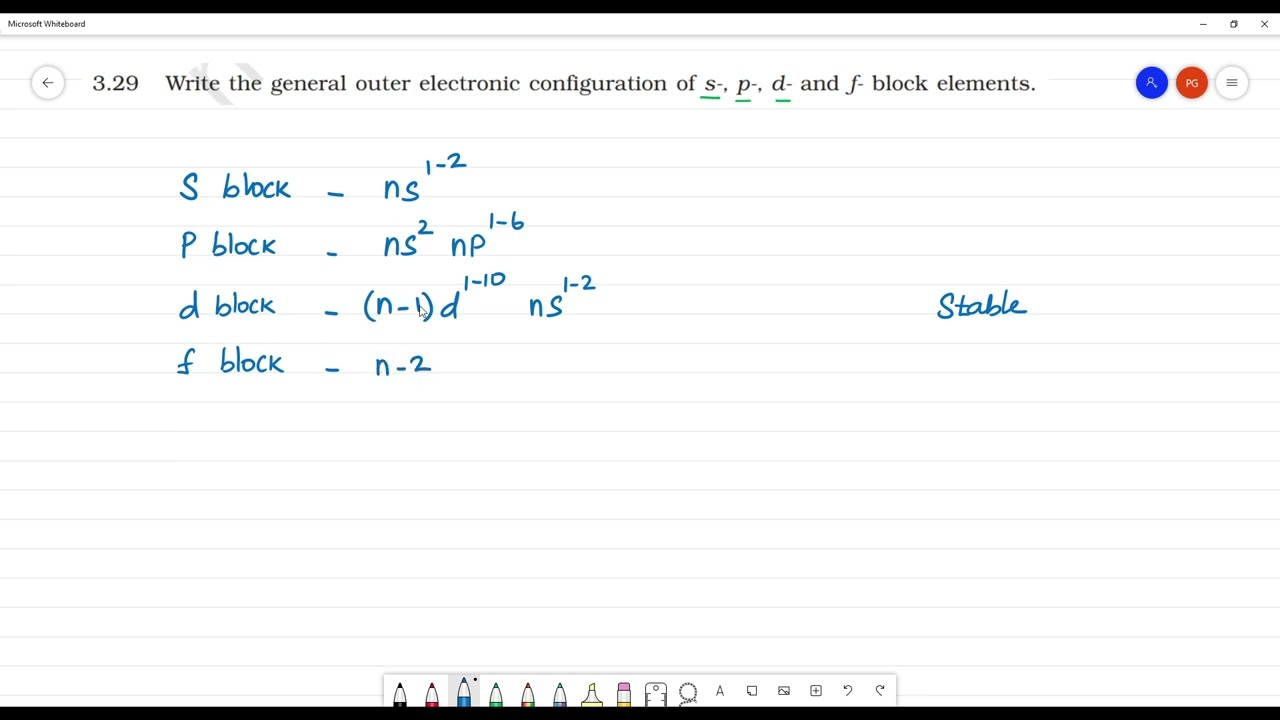 Microsoft Whiteboard
3.29 Write the general outer electronic configuration of s-, p-, d- and f- block elements.
PG
S block - ns¹⁻²
P block - ns² np¹⁻⁶
d block - (n-1)d¹⁻¹⁰ ns¹⁻²
Stable
f block - n-2
A